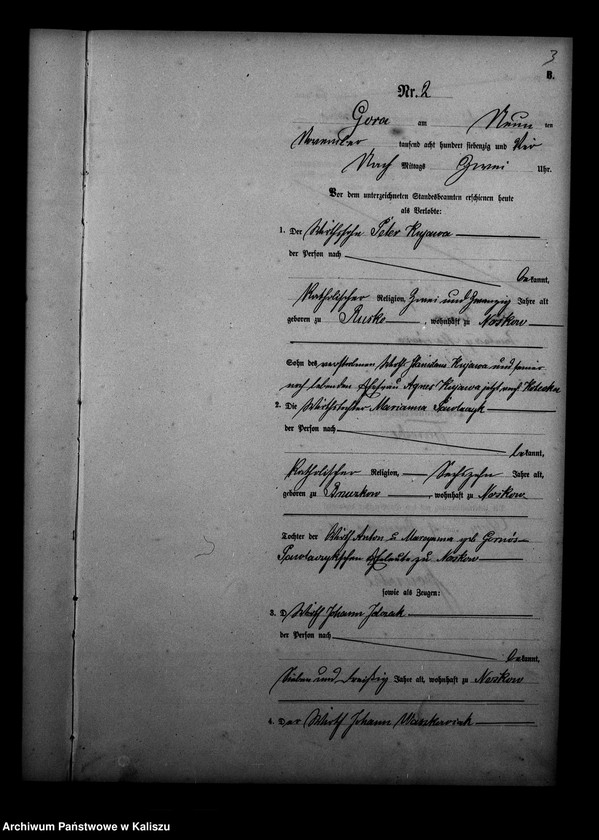 3
B.
Nr. 2
Gora am Neun ten
November tausend acht hundert siebenzig und Vier
Nach Mittags Zwei Uhr.
Vor dem unterzeichneten Standesbeamten erschienen heute
als Verlobte:
1. Der Wirthssohn Peter Kujawa
der Person nach
bekannt,
Katholischer Religion, Zwei und Zwanzig Jahre alt
geboren zu Rusko, wohnhaft zu Noskow
Sohn des verstorbenen Wirth Stanislaus Kujawa und seiner
noch lebenden Ehefrau Agnes Kujawa jetzt
2. Die Wirthstochter Marianna
der Person nach
bekannt,
Katholischer Religion, Sechszehn Jahre alt,
geboren zu wohnhaft zu Noskow
Tochter der Wirth Anton u Maryanna geb
Eheleute zu Noskow
sowie als Zeugen:
3. D Wirth Johann
der Person nach
bekannt,
Sieben und dreißig Jahre alt, wohnhaft zu Noskow
4. Der Wirth Johann
Archiwum Państwowe w Kaliszu